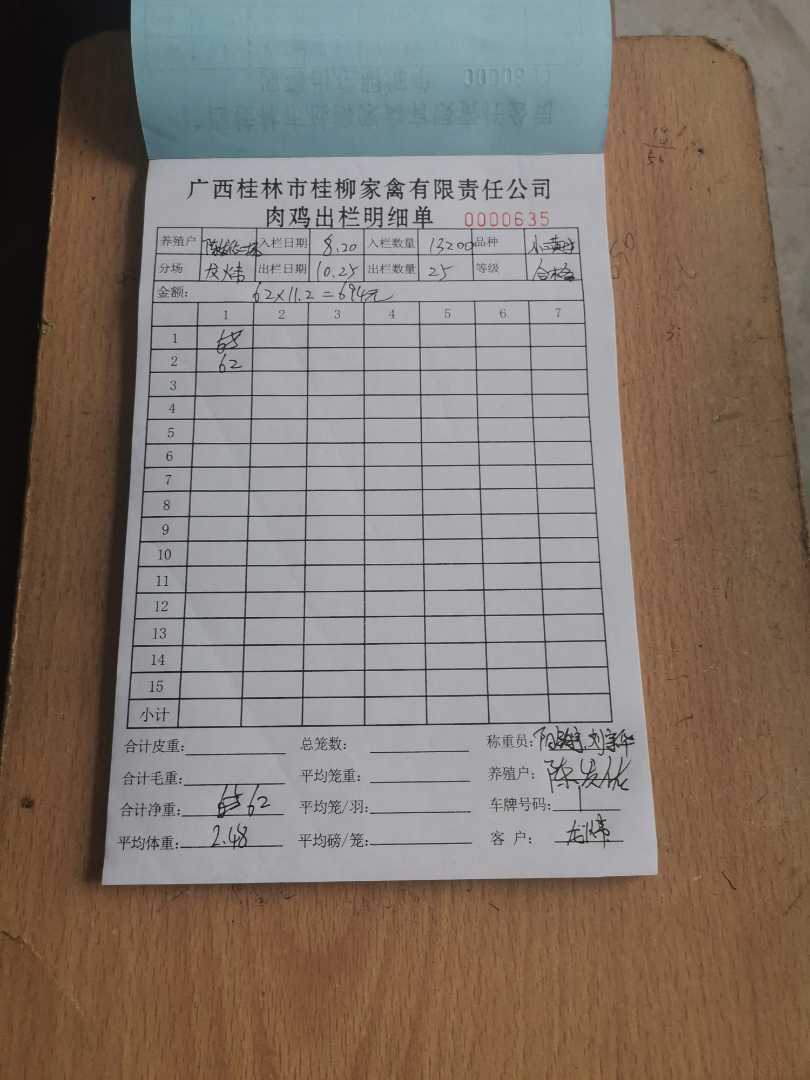 广西桂林市桂柳家禽有限责任公司
肉鸡出栏明细单 0000635
养殖户 入栏日期 8.20 入栏数量 13200 品种
分场 出栏日期 10.25 出栏数量 25 等级 合格
金额: 62×11.2=694元
1 2 3 4 5 6 7
1
2 62
3
4
5
6
7
8
9
10
11
12
13
14
15
小计
合计皮重: 总笼数: 称重员:
合计毛重: 平均笼重: 养殖户:
合计净重: 62 平均笼/羽: 车牌号码:
平均体重: 2.48 平均磅/笼: 客户: